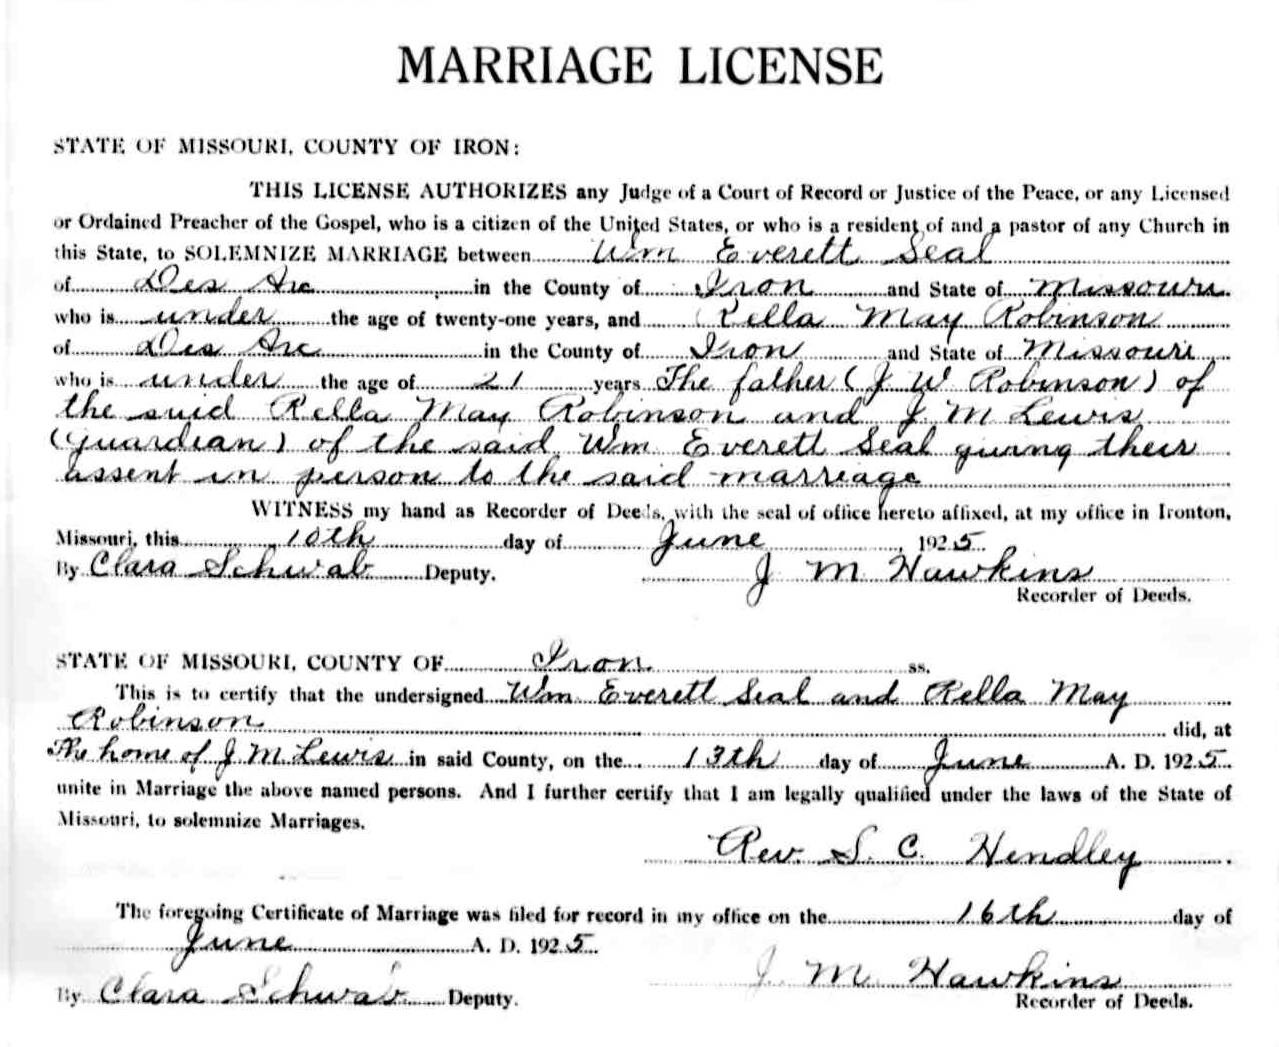 MARRIAGE LICENSE
STATE OF MISSOURI, COUNTY OF IRON:
THIS LICENSE AUTHORIZES any Judge of a Court of Record or Justice of the Peace, or any Licensed
or Ordained Preacher of the Gospel, who is a citizen of the United States, or who is a resident of and a pastor of any Church in
this State, to SOLEMNIZE MARRIAGE between Wm Everett Seal
of Des Arc in the County of Iron and State of Missouri
who is under the age of twenty-one years, and Rella May Robinson
of Des Arc in the County of Iron and State of Missouri
who is under the age of 21 years The father (J W Robinson) of
the said Rella May Robinson and J M Lewis
(Guardian) of the said Wm Everett Seal giving their
assent in person to the said marriage
WITNESS my hand as Recorder of Deeds, with the seal of office hereto affixed, at my office in Ironton,
Missouri, this 10th day of June, 1925.
By Clara Schwab Deputy. J M Hawkins
Recorder of Deeds.
STATE OF MISSOURI, COUNTY OF Iron ss.
This is to certify that the undersigned Wm Everett Seal and Rella May
Robinson did, at
The home of J M Lewis in said County, on the 13th day of June A. D. 1925
unite in Marriage the above named persons. And I further certify that I am legally qualified under the laws of the State of
Missouri, to solemnize Marriages.
Rev. S. C. Hendley.
The foregoing Certificate of Marriage was filed for record in my office on the 16th day of
June A. D. 1925.
By Clara Schwab Deputy. J M Hawkins
Recorder of Deeds.